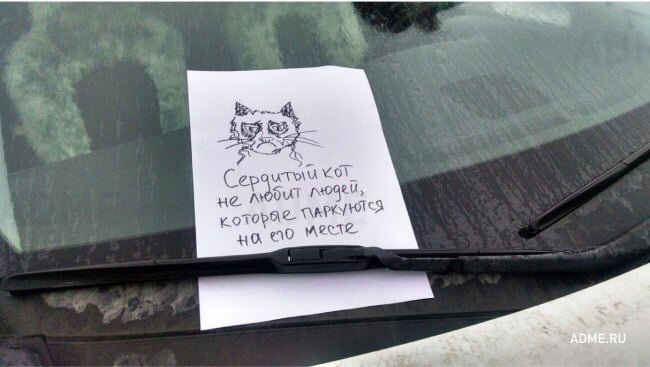 Сердитый кот
не любит людей,
которые паркуются
на его месте
ADME.RU